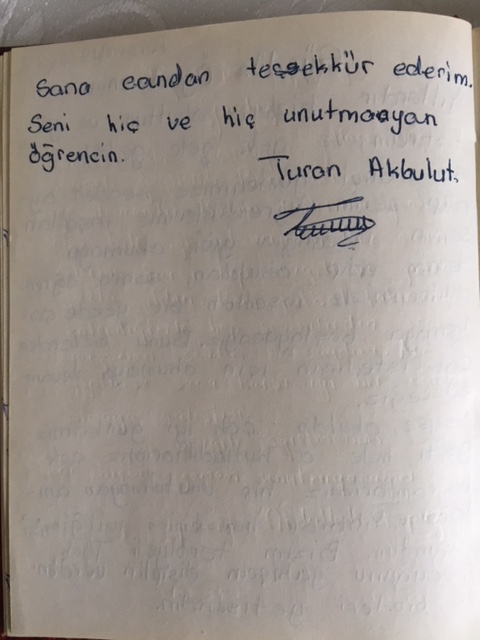 Sana candan teşekkür ederim.
Seni hiç ve hiç unutmayan
öğrencin.
Turan Akbulut.